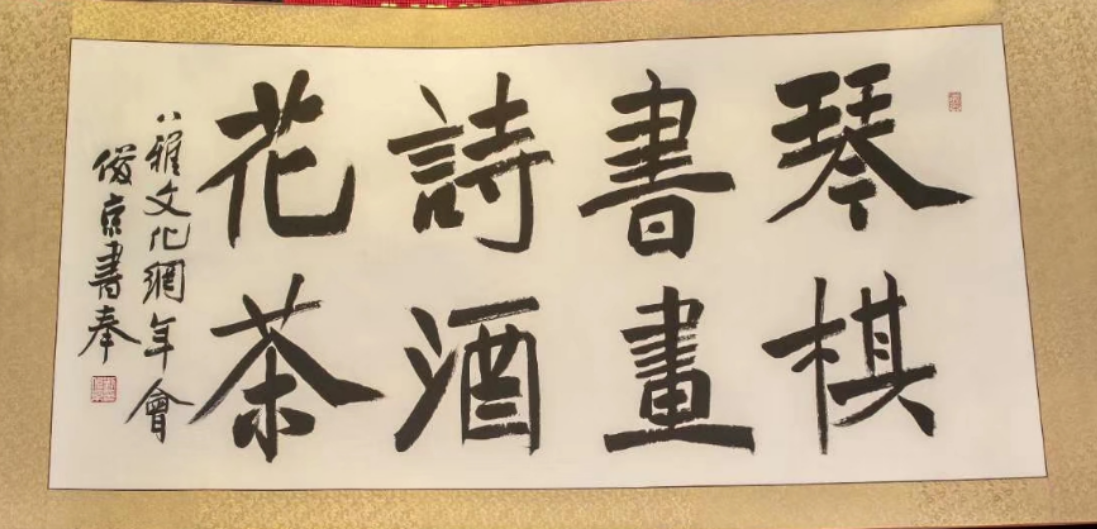 琴棋
書畫
詩酒
花茶
八雅文化網年會
俊京書奉